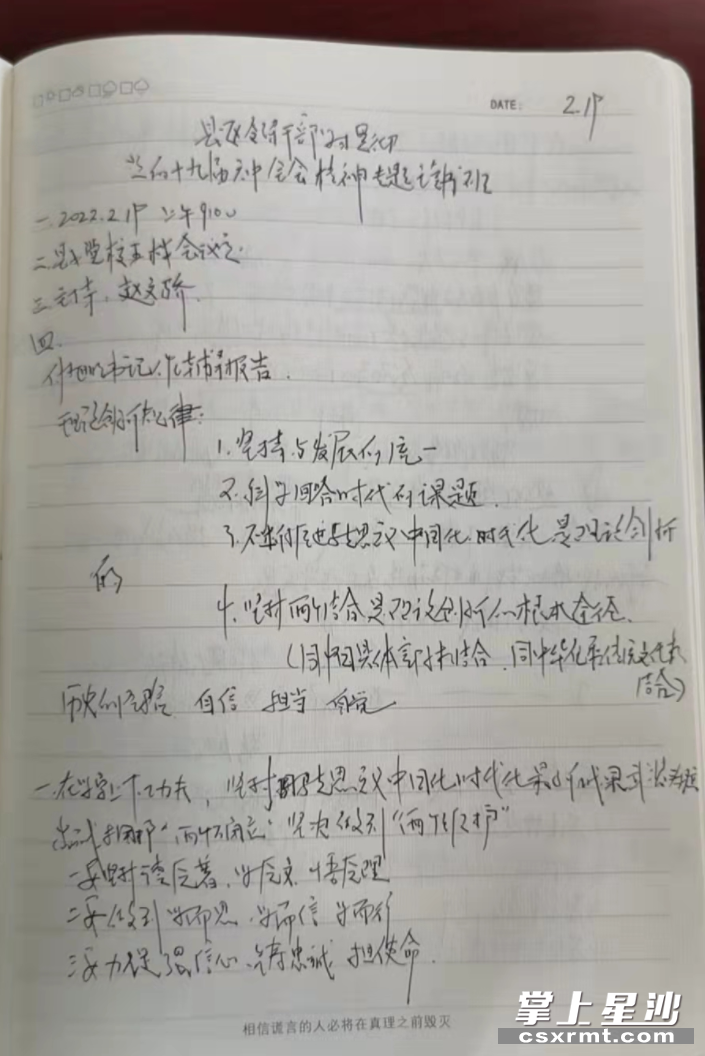 DATE: 2.17
县级领导干部学习贯彻
党的十九届六中全会精神专题读书班
一. 2022.2.17 上午9:00
二. 县委党校五楼会议室.
三. 主持: 赵文骄.
四.
书记作辅导报告.
理论创新规律:
1. 坚持与发展的统一
2. 科学回答时代的课题.
3. 不断推进马思主义中国化时代化是理论创新
的
4. 坚持两个结合是理论创新的根本途径.
(同中国具体实际相结合. 同中华优秀传统文化相
结合)
历史的经验 自信 担当 自觉
一. 在学字上下功夫, 坚持用马思主义中国化时代化最新成果武装头脑
忠诚拥护"两个确立" 坚决做到"两个维护"
一要坚持读原著. 学原文. 悟原理
二要做到学而思 学而信 学而行
三要力促强信心. 铸忠诚 担使命.
相信谎言的人必将在真理之前毁灭
掌上星沙
csxrmt.com